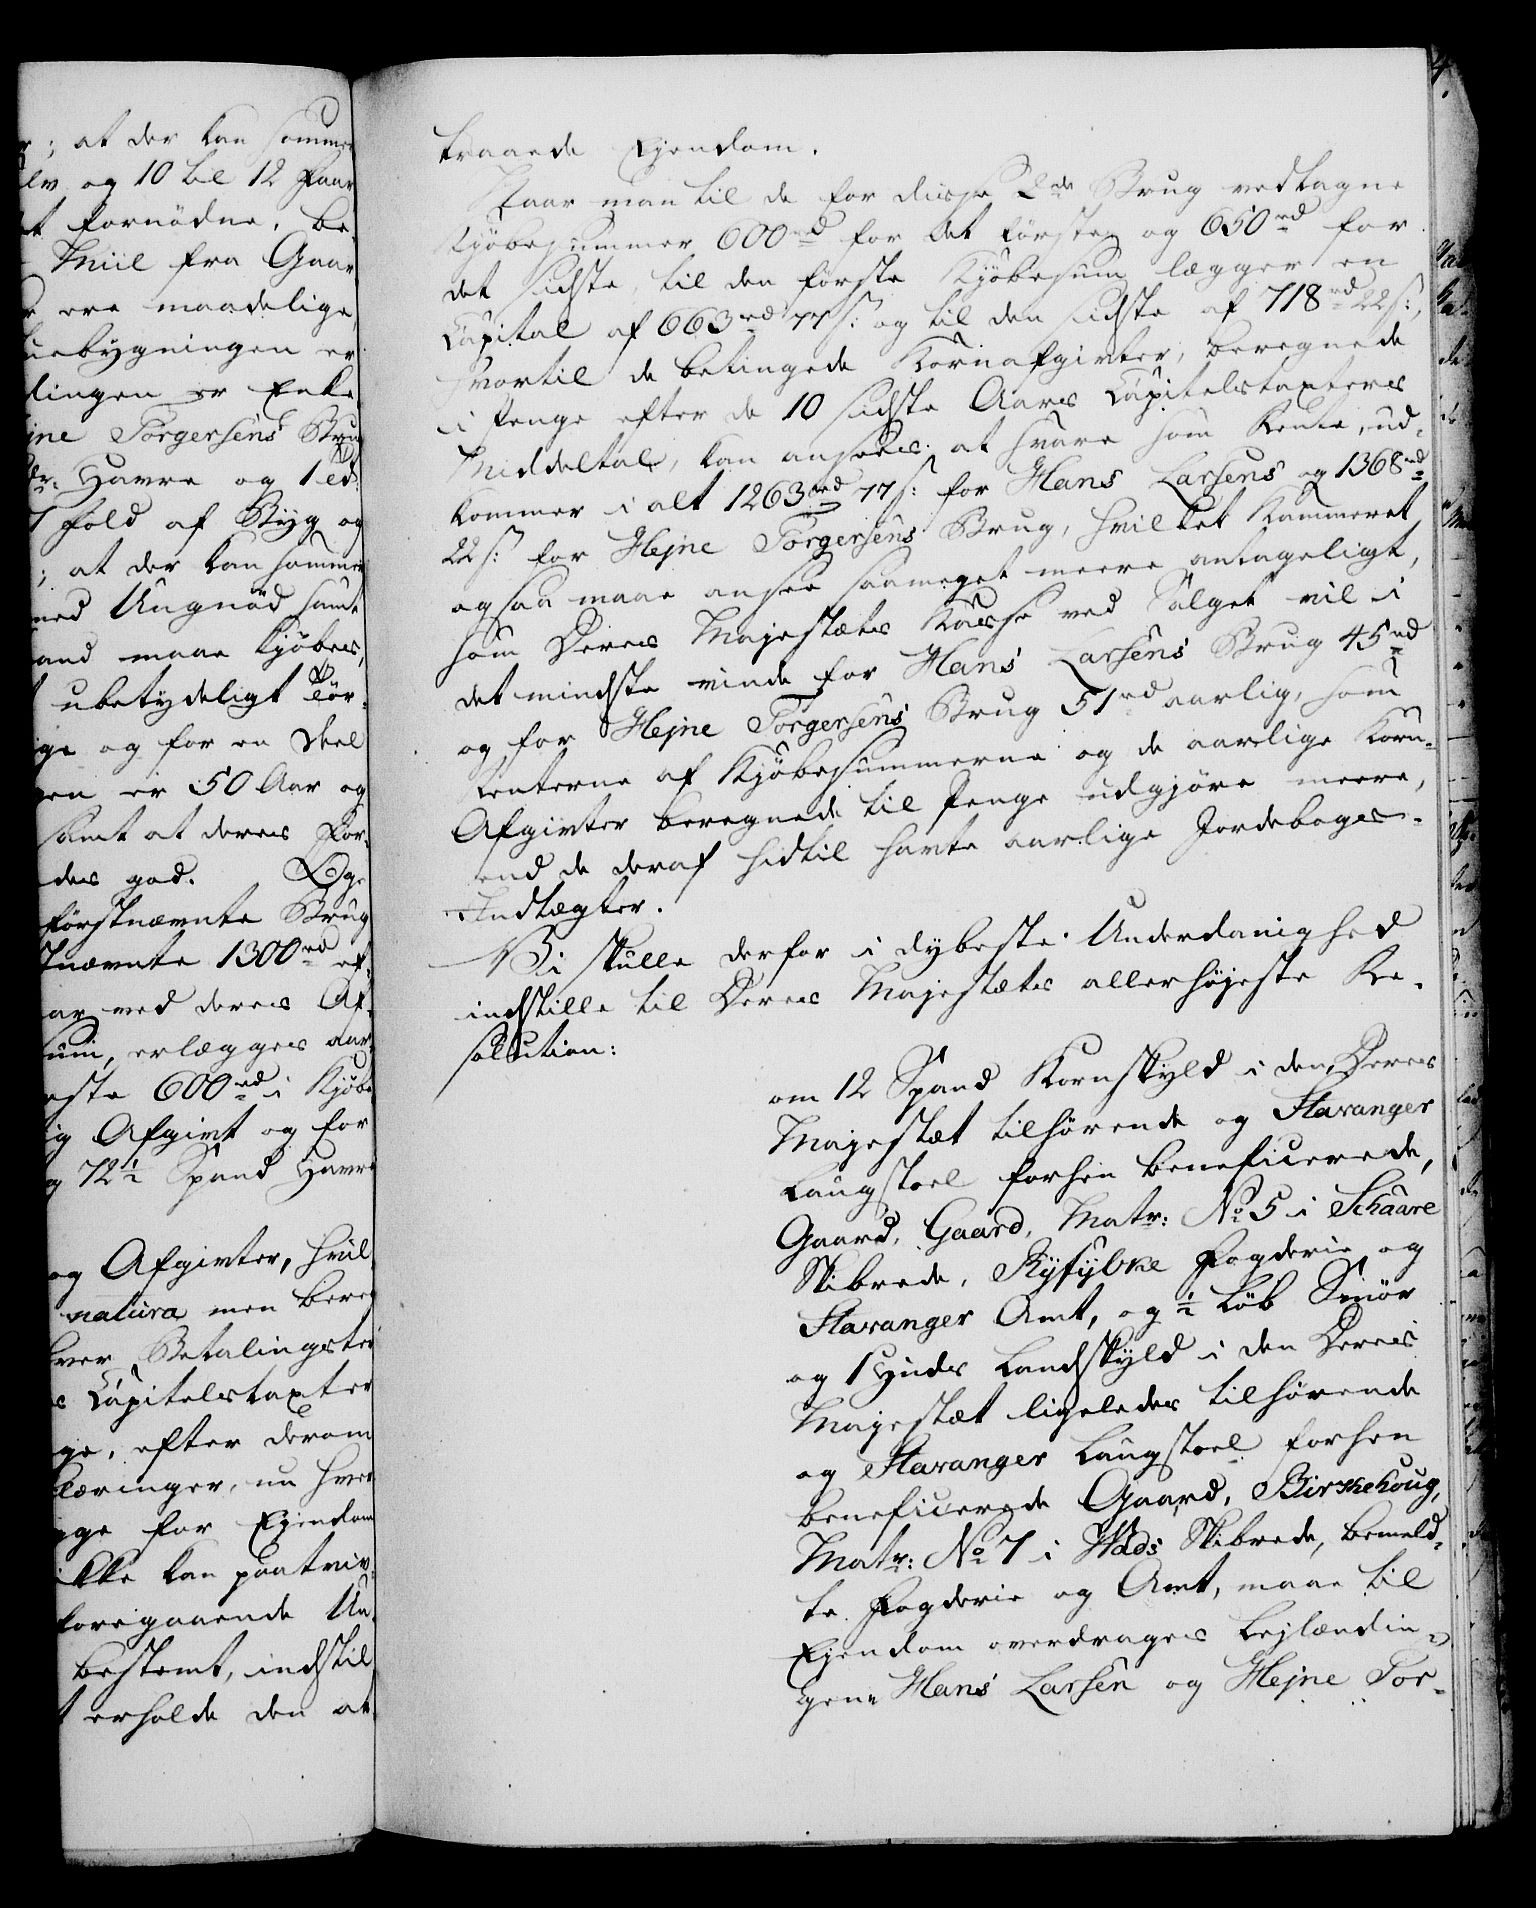 r; at der kan sommer
lv og 10 til 12 Faar
t fornödne, be-
Miil fra Gaar
ere maadelige,
uebygningen er
lingen er Enke
jne Torgersens Brug
Havre og 1
7 Fold af Byg og
; at der kan sommer
med Ungnöd samt
and maae kjöbes,
ubetydeligt Tör-
ige og for en Deel
gen er 50 Aar og
samt at deres For-
des god. Øge
förstnævnte Brug
tnævnte 1300rd ef-
ar ved deres Af-
sum, erlægges aar-
este 600rd i Kjöbe
ig Afgivt og for
g 72½ Spand Havre
og Afgivter, hvil
natura men bere
hver Betalingster
s Capitelstaxter
ge, efter derom
læringer, nu hver
ge for Ejendom
ikke kan paatviv-
foregaaende Un
bestemt, indstil
t erholde den at
4.
traaede Ejendom.
Naar man til de for disse 2de Brug vedtagne
Kjöbesummer 600rd for det förste og 650rd for
det sidste, til den förste Kjöbesum lægger en
Capital af 663rd 77s: og til den sidste af 718rd 22s:,
hvortil de betingede Kornafgivter, beregnede
i Penge efter de 10 sidste Aars Capitelstaxters
Middeltal, kan ansees at svare som Rente, ud-
kommer i alt 1263rd 77s: for Hans Larsens og 1368rd
22s: for Hejne Torgersens Brug, hvilket Kammeret
ogsaa maae ansee saameget meere antageligt,
som Deres Majestæts Kasse ved Salget vil i
det mindste vinde for Hans Larsens Brug 45rd
og for Hejne Torgersens Brug 51rd aarlig, som
Renterne af Kjöbesummerne og de aarlige Korn-
Afgivter beregnede til Penge udgjöre meere,
end de deraf hidtil havte aarlige Jordebogs-
Indtægter.
Vi skulle derfor i dybeste Underdanighed
indstille til Deres Majestæts allerhöjeste Re-
solution:
om 12 Spand Kornskyld i den Deres
Majestæt tilhörende og Stavanger
Laugstoel forhen beneficerede,
Gaard, Gaard, Matr: No 5 i Schaare
Skibrede, Ryfylke Fogderie og
Stavanger Amt, og ½ Löb Smör
og 1 Huds Landskyld i den Deres
Majestæt ligeledes tilhörende
og Stavanger Laugstoel forhen
beneficerede Gaard, Birkehoug,
Matr: No 7 i Wads Skibrede, bemeld-
te Fogderie og Amt, maae til
Ejendom overdrages Lejlændin-
gene Hans Larsen og Hejne Tor-